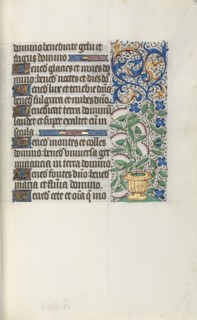 domino benedicite gelu et
frigus domino
Bened glacies et nives do
mino: bened noctes et dies do
Bened lux et tenebre dno:
bened fulgura et nubes dno.
Benedicat terra dominum
laudet et super exaltet eum in
secula.
Bened montes et colles
domino: bened universa ger
minancia in terra domino.
Bened fontes dno: bened
maria et flumina domino.
Bened cete et oia que mo